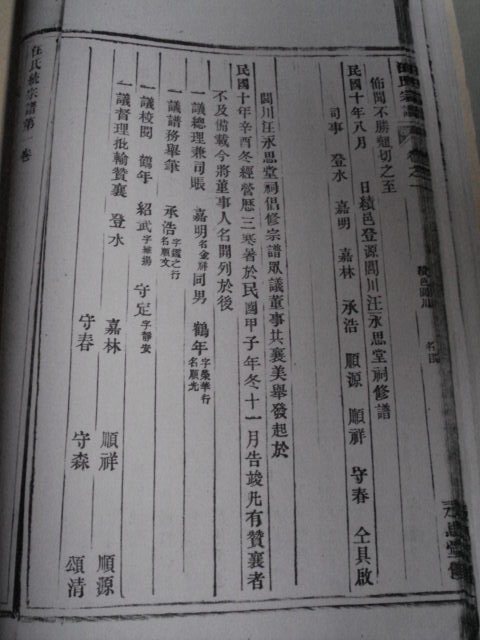 佈聞不勝翹切之至
民國十年八月 日績邑登源閬川汪永思堂祠修譜
司事 登水 嘉明 嘉林 承浩 順源 順祥 守春 仝具啟
閬川汪永思堂祠倡修宗譜眾議董事共襄美舉發起於
民國十年辛酉冬經營歷三寒暑於民國甲子年冬十一月告竣凡有贊襄者
不及備載今將董事人名開列於後
一議總理兼司賬 嘉明名金牌同男 鶴年字榮華行名順光
一議譜務舉筆 承浩字鑑之行名順文
一議校閱 鶴年 紹武字維揚 守定字靜安
一議督理批輸贊襄 登水 嘉林 順祥 順源
守春 守森 頌清
汪氏統宗譜第 卷